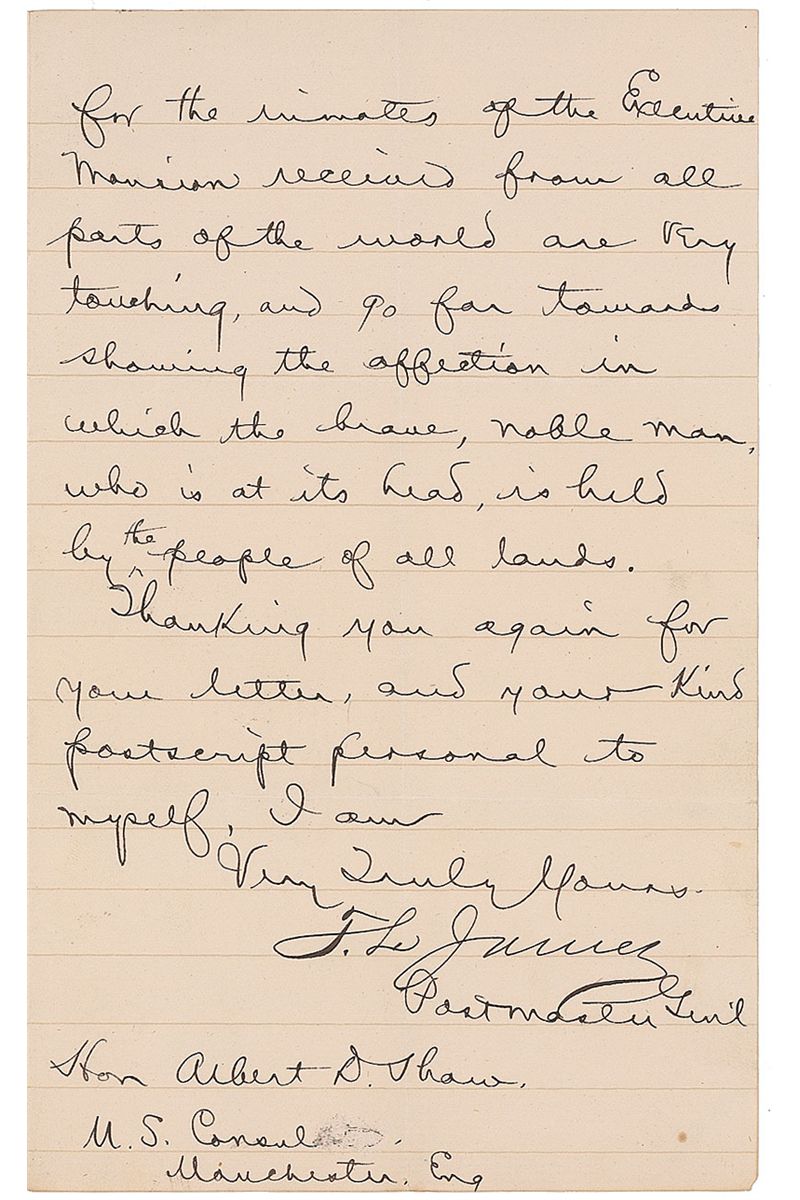 for the inmates of the Executive
Mansion received from all
parts of the world are very
touching, and go far towards
showing the affection in
which the brave, noble man,
who is at its head, is held
by the people of all lands.
Thanking you again for
your letter, and your kind
postscript personal to
myself, I am
Very Truly Yours.
T. L. James
Postmaster Genl
Hon Albert D. Shaw.
U. S. Consul
Manchester. Eng